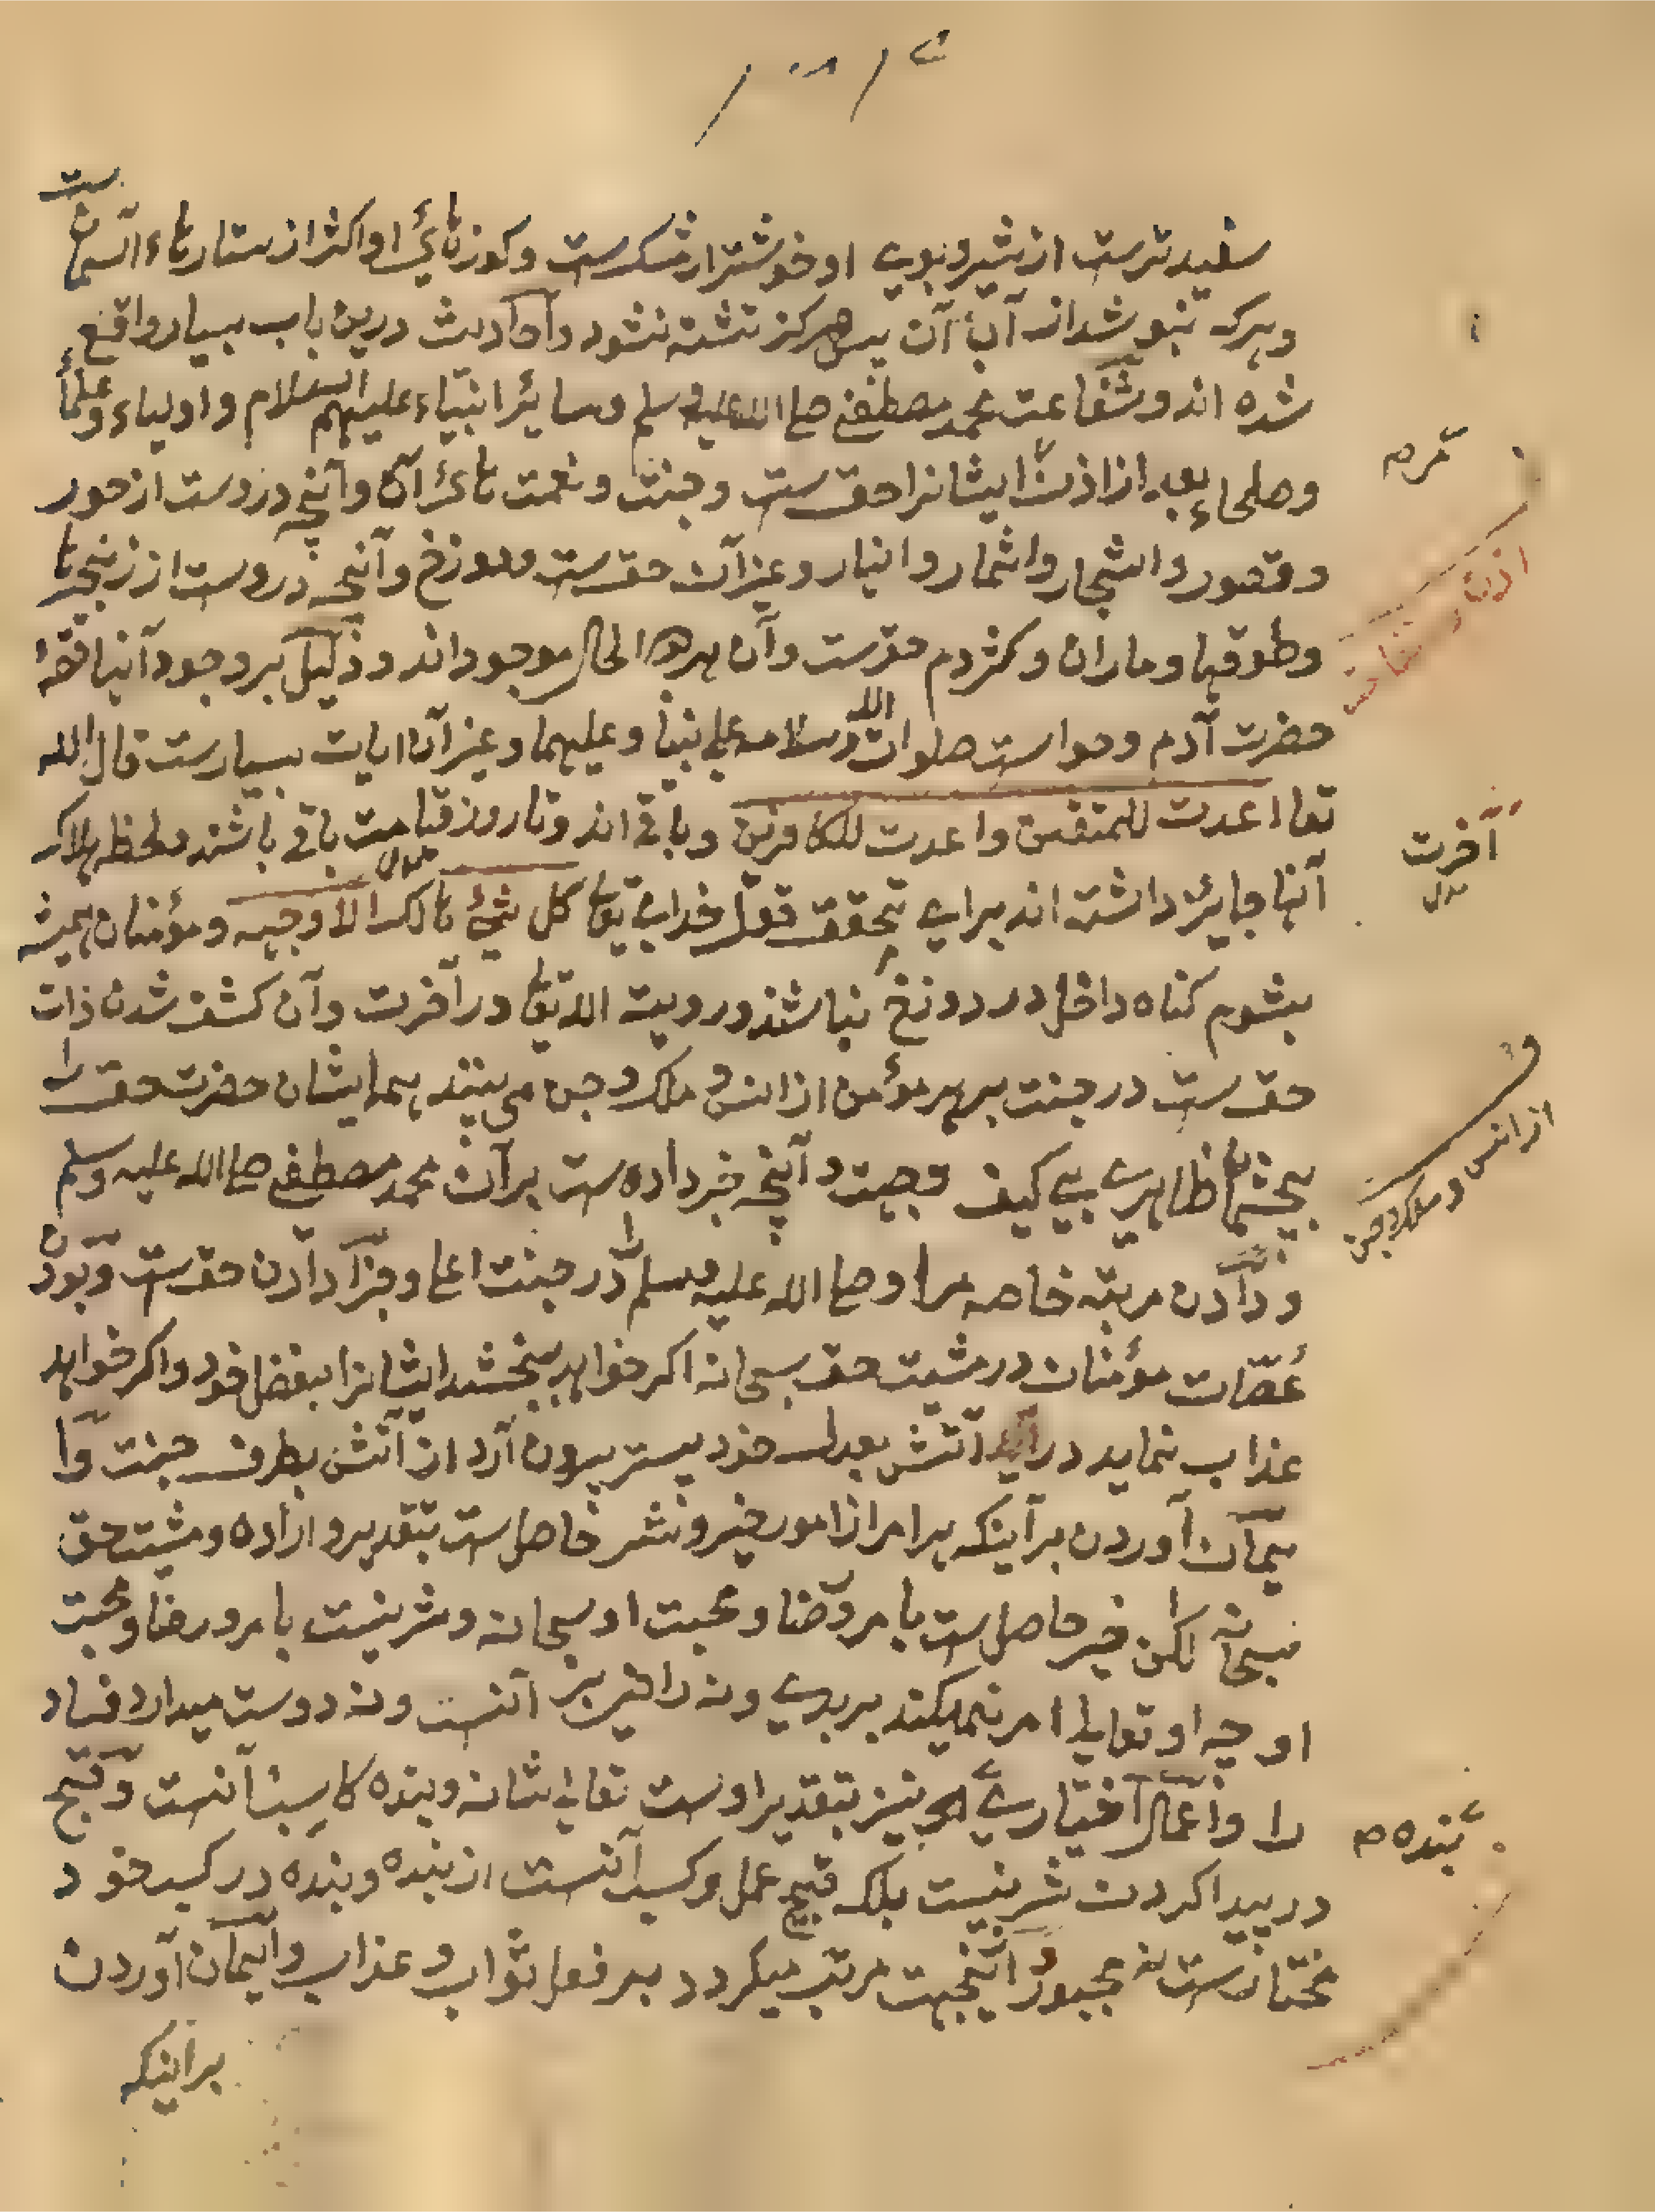 سفیدترست از شیر و بوی او خوشتر از شکرست و کوزهائ او اکثر از ستارهاء آسمانست
و هرکه بنوشد از آب آن پس هرکز تشنه نشود و احادیث درین باب بسیار واقع
شده اند و شفاعت محمد مصطفی صلی الله علیه وسلم و سائر انبیاء علیهم السلام و اولیاء و علماء
و صلحاء بعد از اذن ایشانرا حق ست و جنت و نعمت هائ آن و آنچه دروست از حور
و قصور و اشجار و اثمار و انهار و غیر آن حق ست و دوزخ و آنچه دروست از زنجیرها
و طوقها و ماران و کژدم حق ست و آن هر دو الحال موجود اند و دلیل بر وجود آنها قصه
حضرت آدم و حواست صلوات الله و سلامه علی نبینا و علیهما و غیر آن ایات بسیارست قال الله
تعا اعدت للمتقین و اعدت للکافرین و باقی اند و تا روز قیامت باقی باشند و لحظه هلاک
آنها جایز داشته اند برای تحقق قول خدای تعا کل شیئ هالک الا وجهه و مؤمنان همیشه
بشوم کناه داخل در دوزخ نباشند و رویت الله تعا در آخرت و آن کشف شدن ذات
حق ست در جنت بر هر مؤمن از انس و ملک و جن می بینند همه ایشان حضرت حق را
بچشمها ظاهری بی کیف و جهت و آنچه خبر داده ست بر آن محمد مصطفی صلی الله علیه وسلم
و دادن مرتبه خاصه مر او صلی الله علیه وسلم را در جنت اعلی و جزا دادن حق ست و بودن
عصات مؤمنان در مشیت حق سبحانه اکر خواهد ببخشد ایشانرا بفضل خود و اکر خواهد
عذاب نماید در آتش بعدل خود پستر بیرون آرد از آتش بطرف جنت و ا
یمان آوردن بر آینکه هر امر از امور خیر و شر حاصل ست بتقدیر و اراده و مشیت حق
سبحانه لکن خیر حاصل ست با مر و رضا و محبت او سبحانه و شر نیست با مر و رضا و محبت
او چه او تعالی امر نمیکند بر بدی و نه راضی بر آنست و نه دوست میدارد فساد
را و اعمال اختیاری نیز بتقدیر اوست تعالی شانه و بنده کاسب آنست و قبح
در پیدا کردن شر نیست بلکه قبح عمل و کسب آنست از بنده و بنده در کسب خود
مختارست نه مجبور و ازینجهت مرتب میکردد بر فعل ثواب و عذاب و ایمان آوردن
براینکه
آخرت
از انس و ملک و جن
بنده